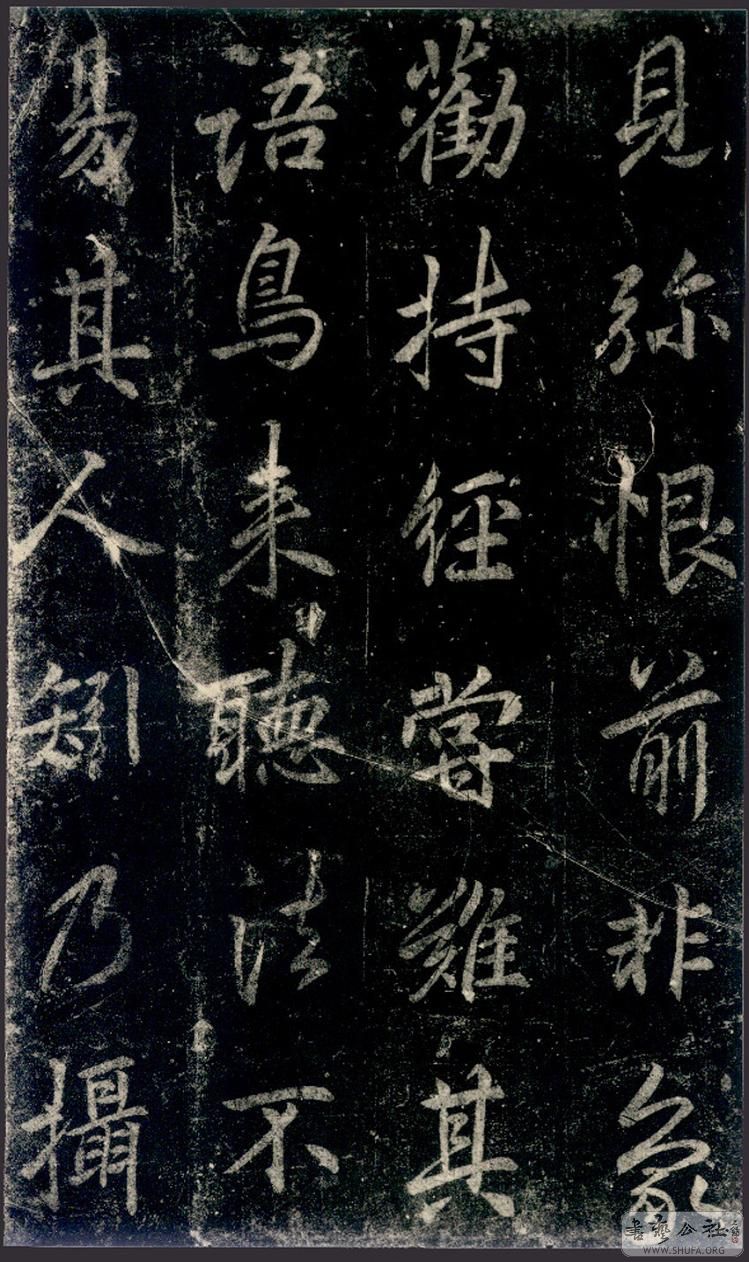 見弥恨前非
勸持經嘗難其
語鳥来聽法不
易其人矧乃攝
書藝公社
WWW.SHUFA.ORG